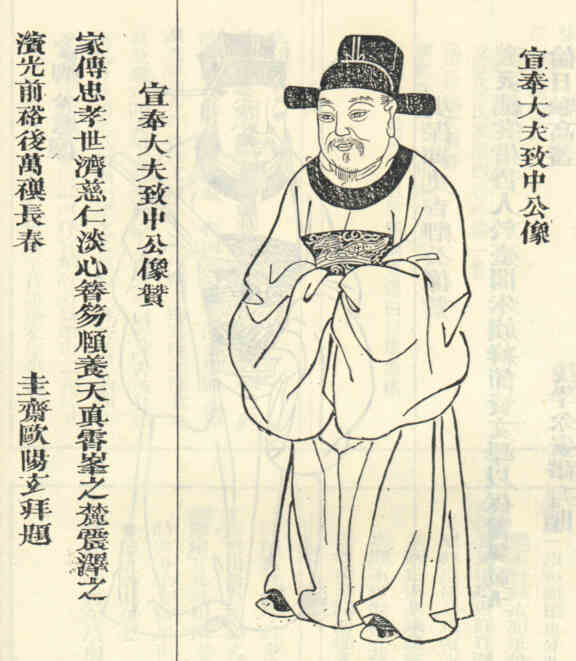 宣奉大夫致中公像
宣奉大夫致中公像贊
家傳忠孝世濟慈仁淡心簪笏頤養天真霄峯之麓震澤之
濱光前裕後萬禩長春
圭齋歐陽玄拜題